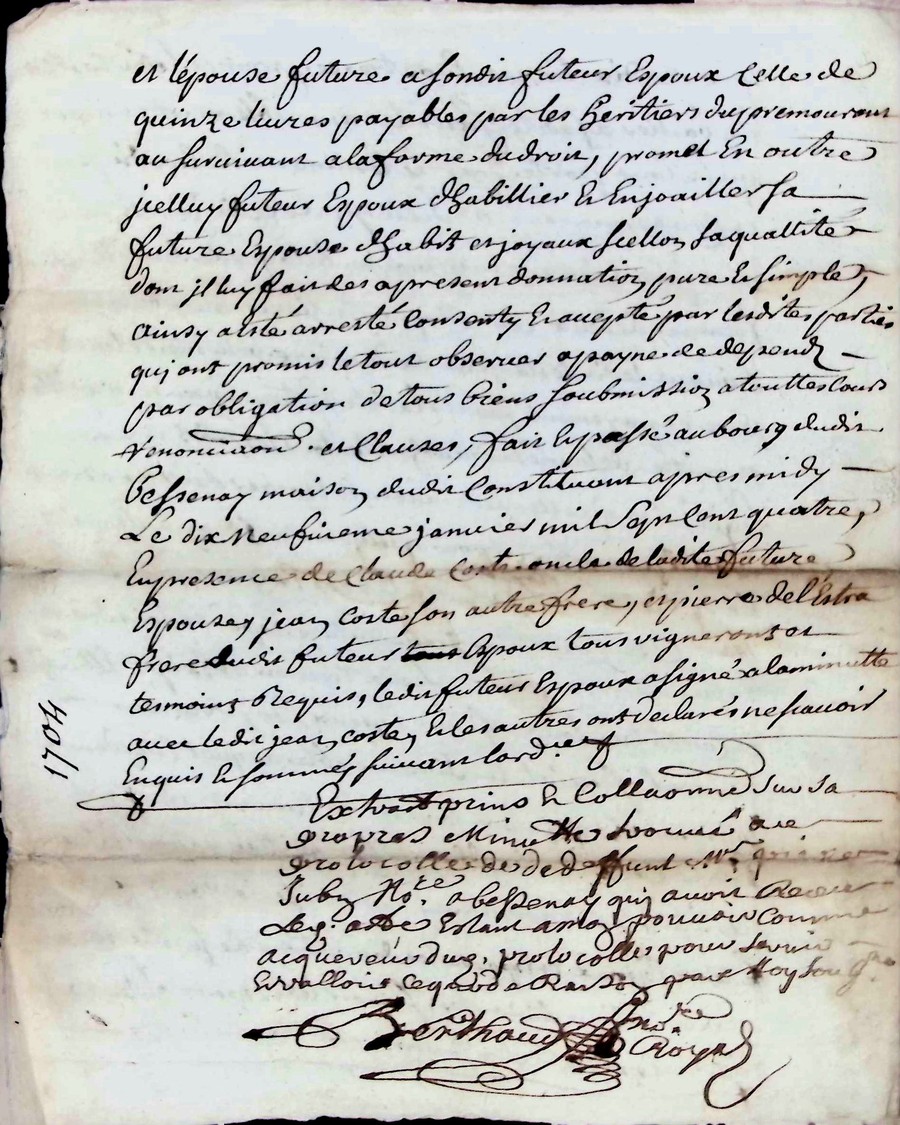 et lépouse future a sondit futeur Espoux Celle de
quinze livres payables par les Heritiers du premourant
au survivant a la forme du droit, promet En outre
jcelluy futeur Espoux dhabillier & Enjoailler sa
future Espouse dhabits et joyaux scellon sa quallité
dont jl luy fait des apresent donnation pure & simple,
ainsy a esté arresté Consenty & accepté par lesdites parties
quj ont promis le tout observer a payne de depends
par obligation de tous biens soubmission a touttes Cours
et Clauses, fait & passé au bourg dudit
bessenay maison dudit Constituant apres midy
Le dix neufvieme janvier mil Sept Cent quatre,
En presence de Claude Coste oncle de ladite future
Espouse, jean coste son autre frere, et pierre de l'Estra
frere dudit futeur tous Espoux tous vignerons et
temoins Requis, ledit futeur Espoux a signé a la minutte
avec ledit jean coste, & les autres ont declarés ne scavoir
Enquis & sommés suivant lord.ce
1704
Extrait prins & Collaonné sur sa
propres Minutte trouvé au
protocolle de deffunt Mre
Juby No.re a bessenay quj avoit Receu
Led. acte Estant a mon pouvoir Comme
acquereur dud. protocolle pour servir
& valloir ce que de Raison par Moy
Berthaud no.re
Royal